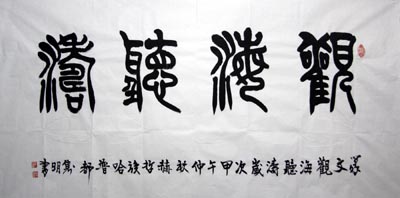 觀海聽濤
篆文觀海聽涛歲次甲午仲秋赫哲族哈普都隽明書